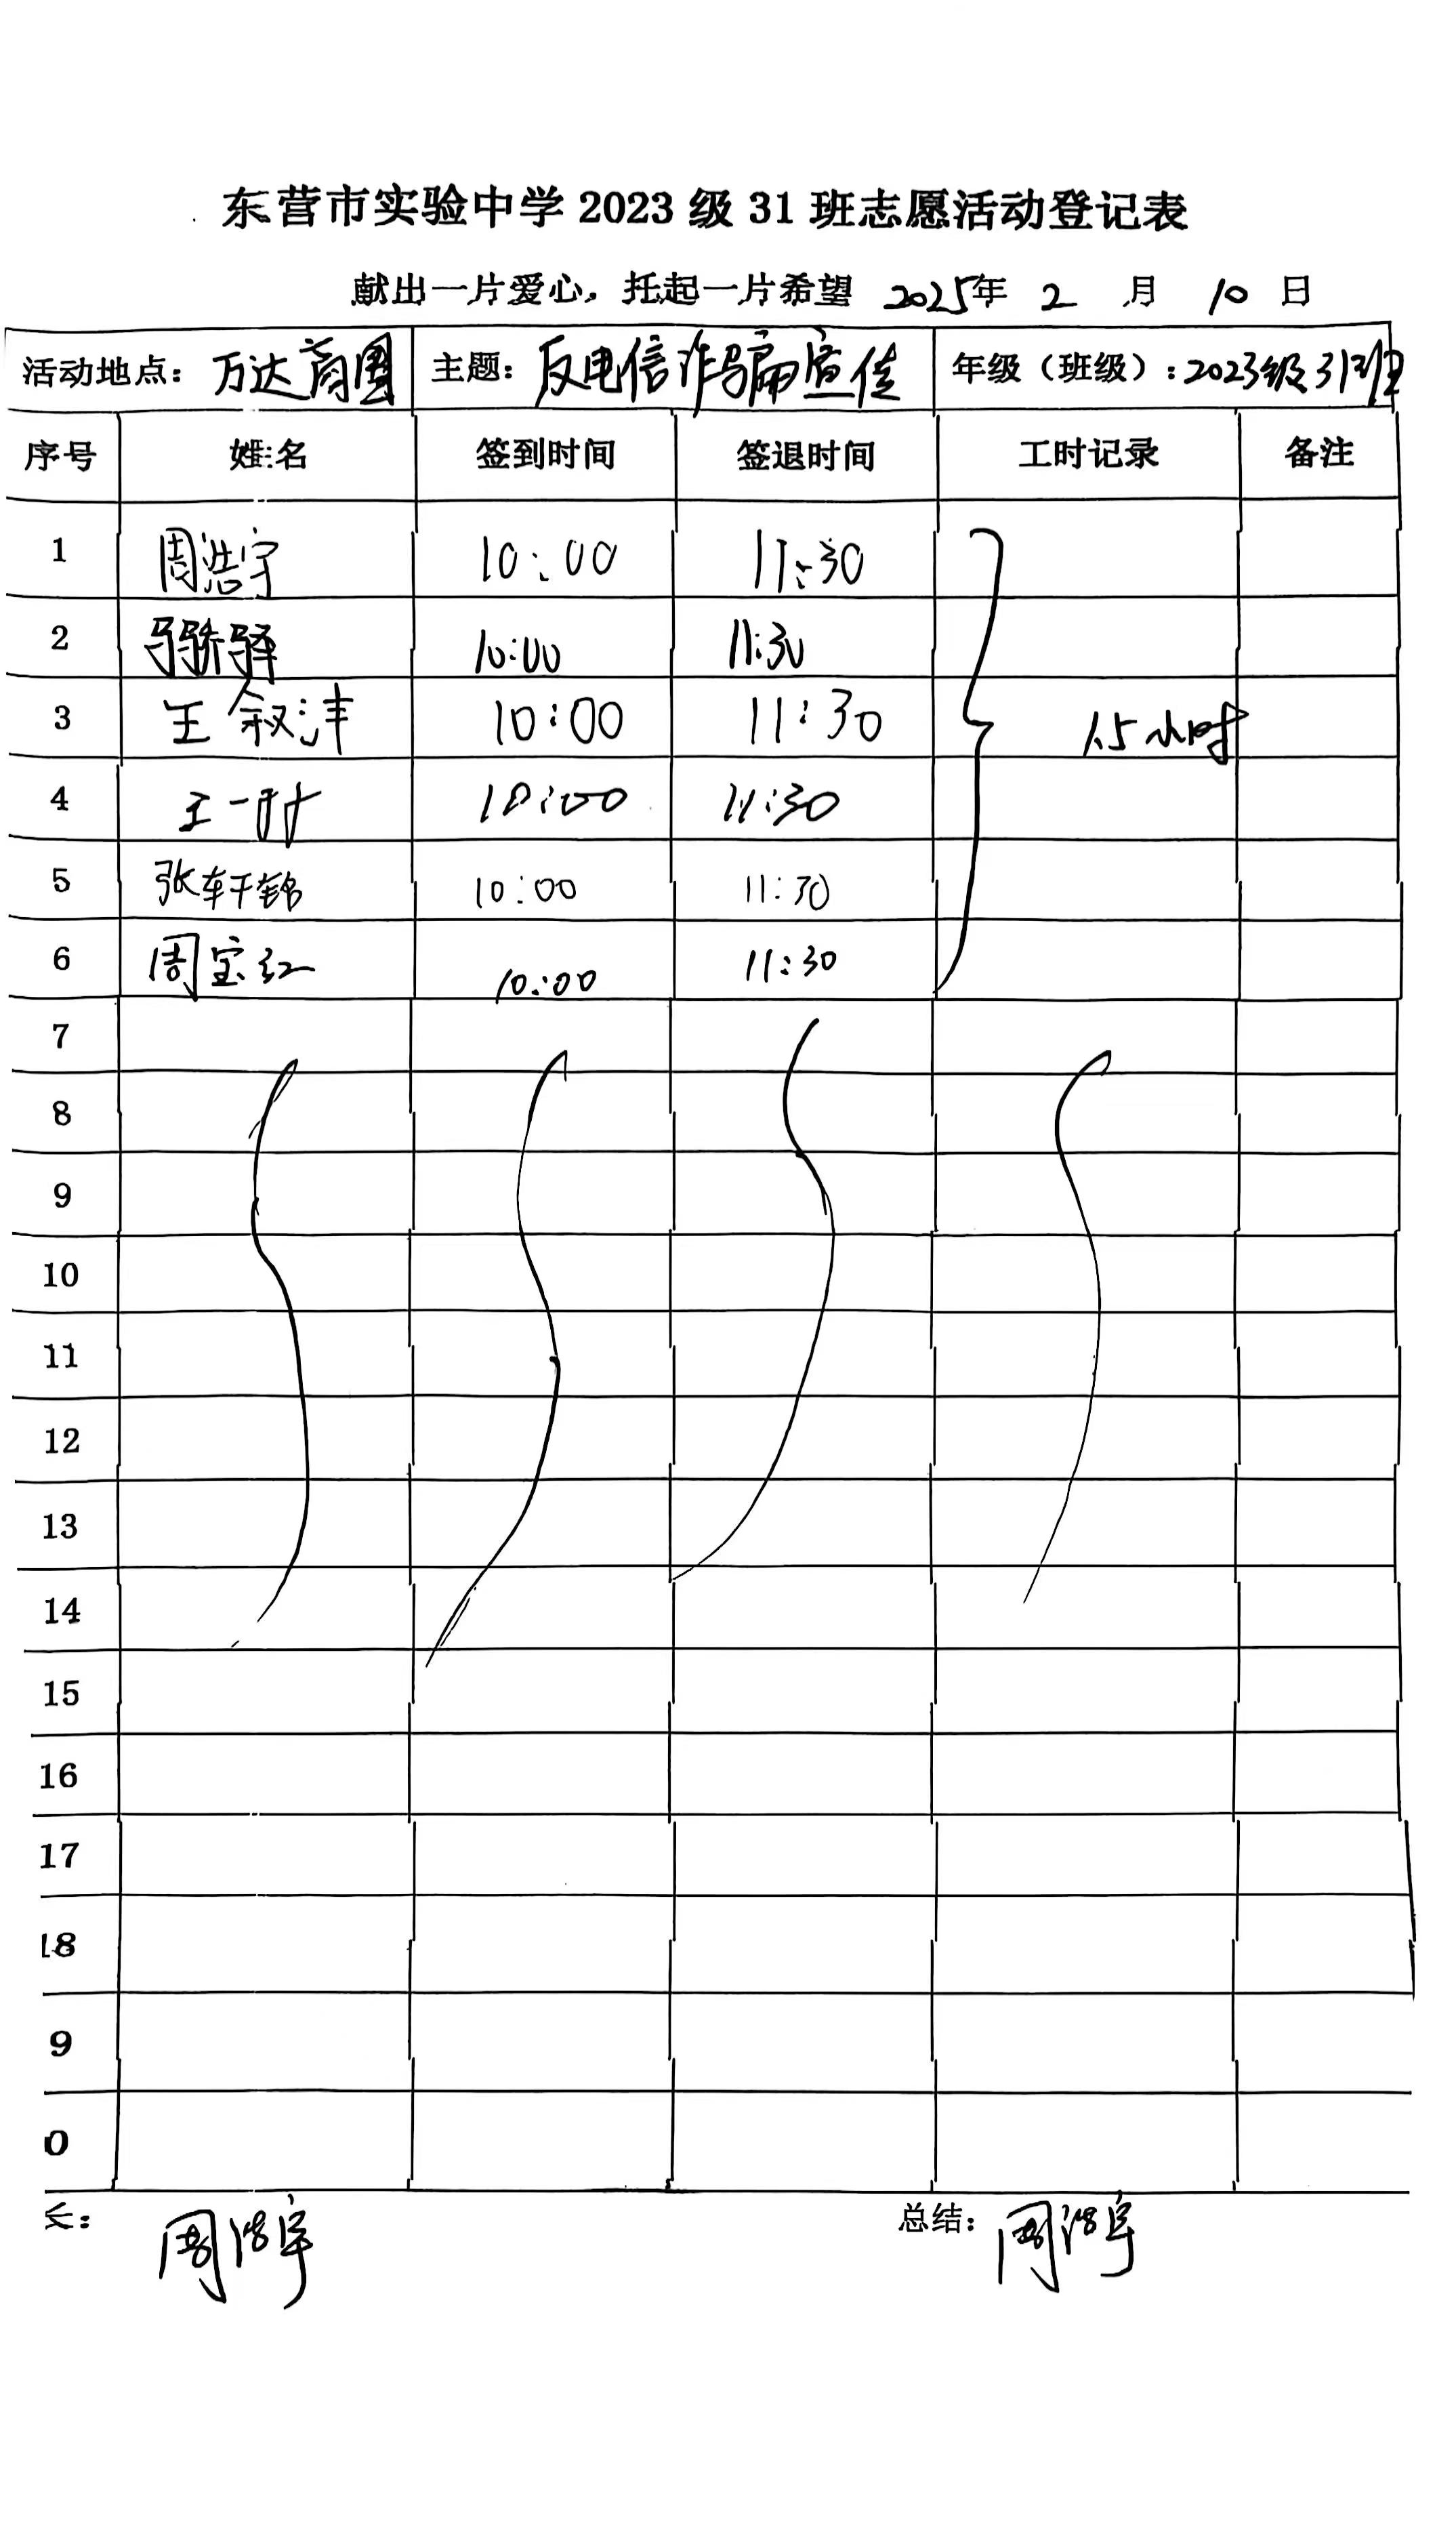 东营市实验中学2023级31班志愿活动登记表
献出一片爱心，托起一片希望 2025年 2 月 10 日
活动地点：万达商圈 主题：反电信诈骗宣传 年级（班级）：2023级31班
序号 姓名 签到时间 签退时间 工时记录 备注
1 周浩宇 10:00 11:30
2 马骄驿 10:00 11:30
3 王叙沣 10:00 11:30 1.5小时
4 王一 10:00 11:30
5 张轩锦 10:00 11:30
6 周宝红 10:00 11:30
7
8
9
10
11
12
13
14
15
16
17
18
9
0
长： 周浩宇 总结： 周浩宇